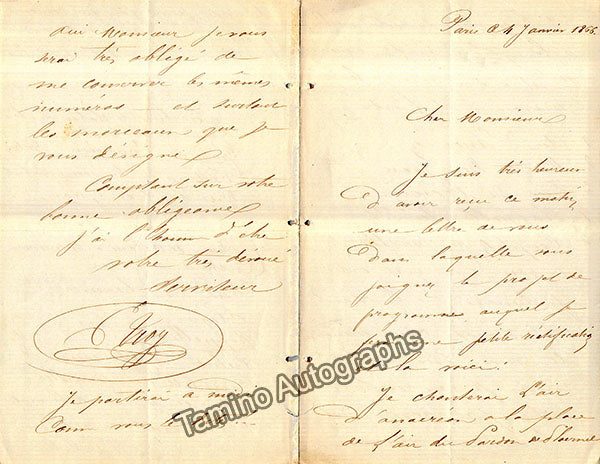 Paris ce 4 Janvier 1866.
Cher Monsieur
Je suis très heureux
d'avoir reçu ce matin,
une lettre de vous
dans laquelle vous
joignez le projet de
programme auquel je
petite rectification
la voici:
Je chanterai l'air
d'anacréon a la place
de l'air du Pardon de Ploermel
Oui Monsieur je vous
serai très obligé de
me conserver les mêmes
numéros et surtout
les morceaux que je
vous désigne
Comptant sur votre
bonne obligeance
j'ai l'honn d'être
votre très dévoué
Serviteur
Troy
Je partirai a
Tamino Autographs